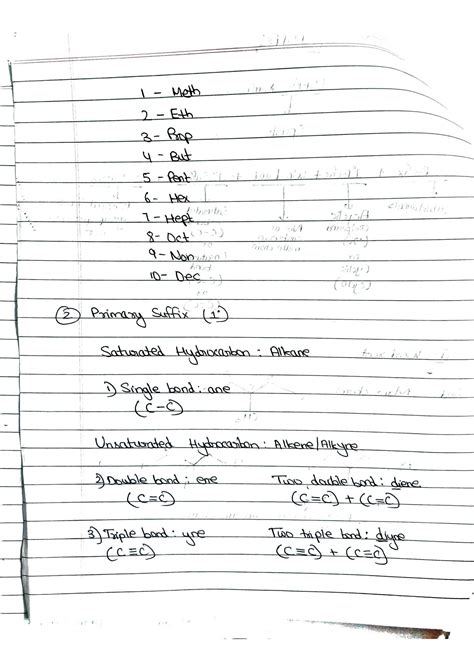 1 - Meth
2 - Eth
3 - Prop
4 - But
5 - Pent
6 - Hex
7 - Hept
8 - Oct
9 - Non
10 - Dec
② Primary Suffix (1°)
Saturated Hydrocarbon : Alkane
1) Single bond : ane
(C-C)
Unsaturated Hydrocarbon : Alkene/Alkyne
2) Double bond : ene Two double bond : diene
(C=C) (C=C) + (C=C)
3) Triple bond : yne Two triple bond : diyne
(C≡C) (C≡C) + (C≡C)